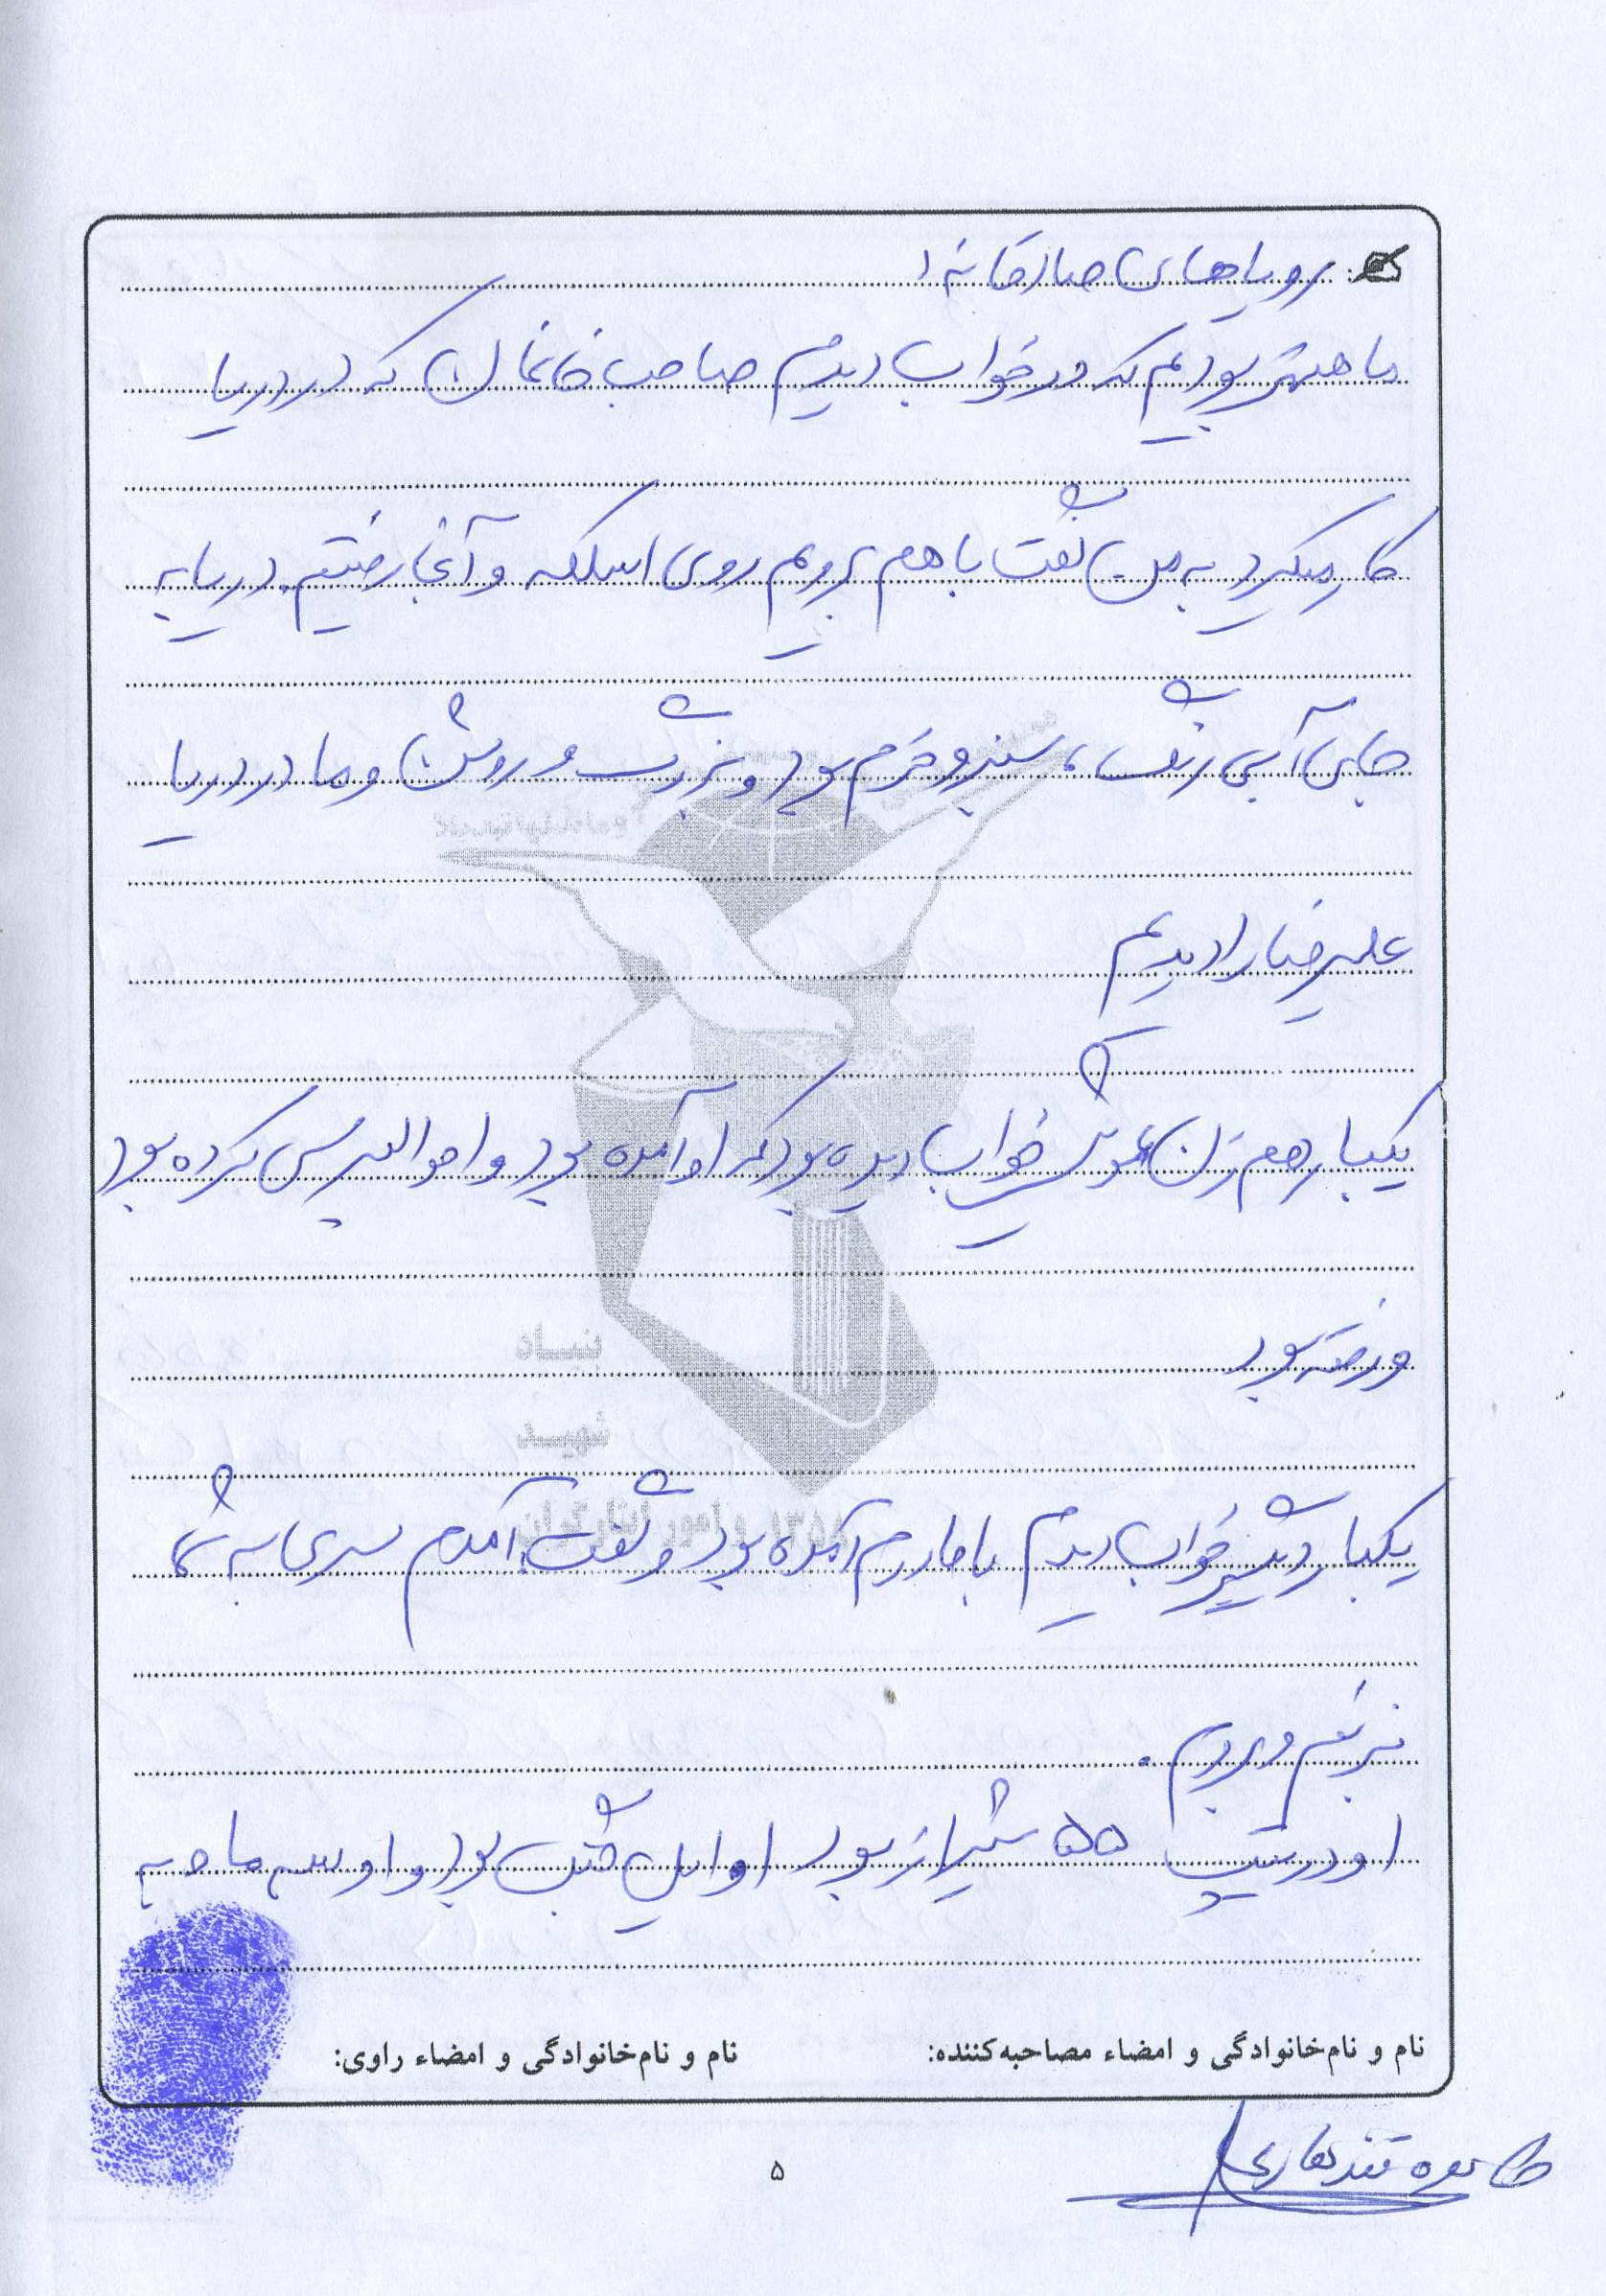 رویاهای صادقانه:
ما هتقر بودیم که در خواب دیدم صاحب خانمان که در دریا
کار میکرد به من گفت با هم برویم روی اسکله و آنجا رفتیم. دریا به
جای آبی رنگ، سبز و خرم بود و بزرگ و روشن و ما در دریا
علیرضا را دیدیم
یکبار هم زن عمویش خواب دیده بود که او آمده بود و احوالپرسی کرده بود
و رفته بود
یکبار دیگر خواب دیدم با مادرم آمده بود و گفت آمدم سری به شما
بزنم و بروم.
او در تیپ ۵۵ شیراز بود اوایل جنگ بود و او سه ماه به
بنیاد
شهید
و امور ایثارگران
نام و نام‌خانوادگی و امضاء مصاحبه‌کننده: نام و نام‌خانوادگی و امضاء راوی:
طاهره قندهاری
۵